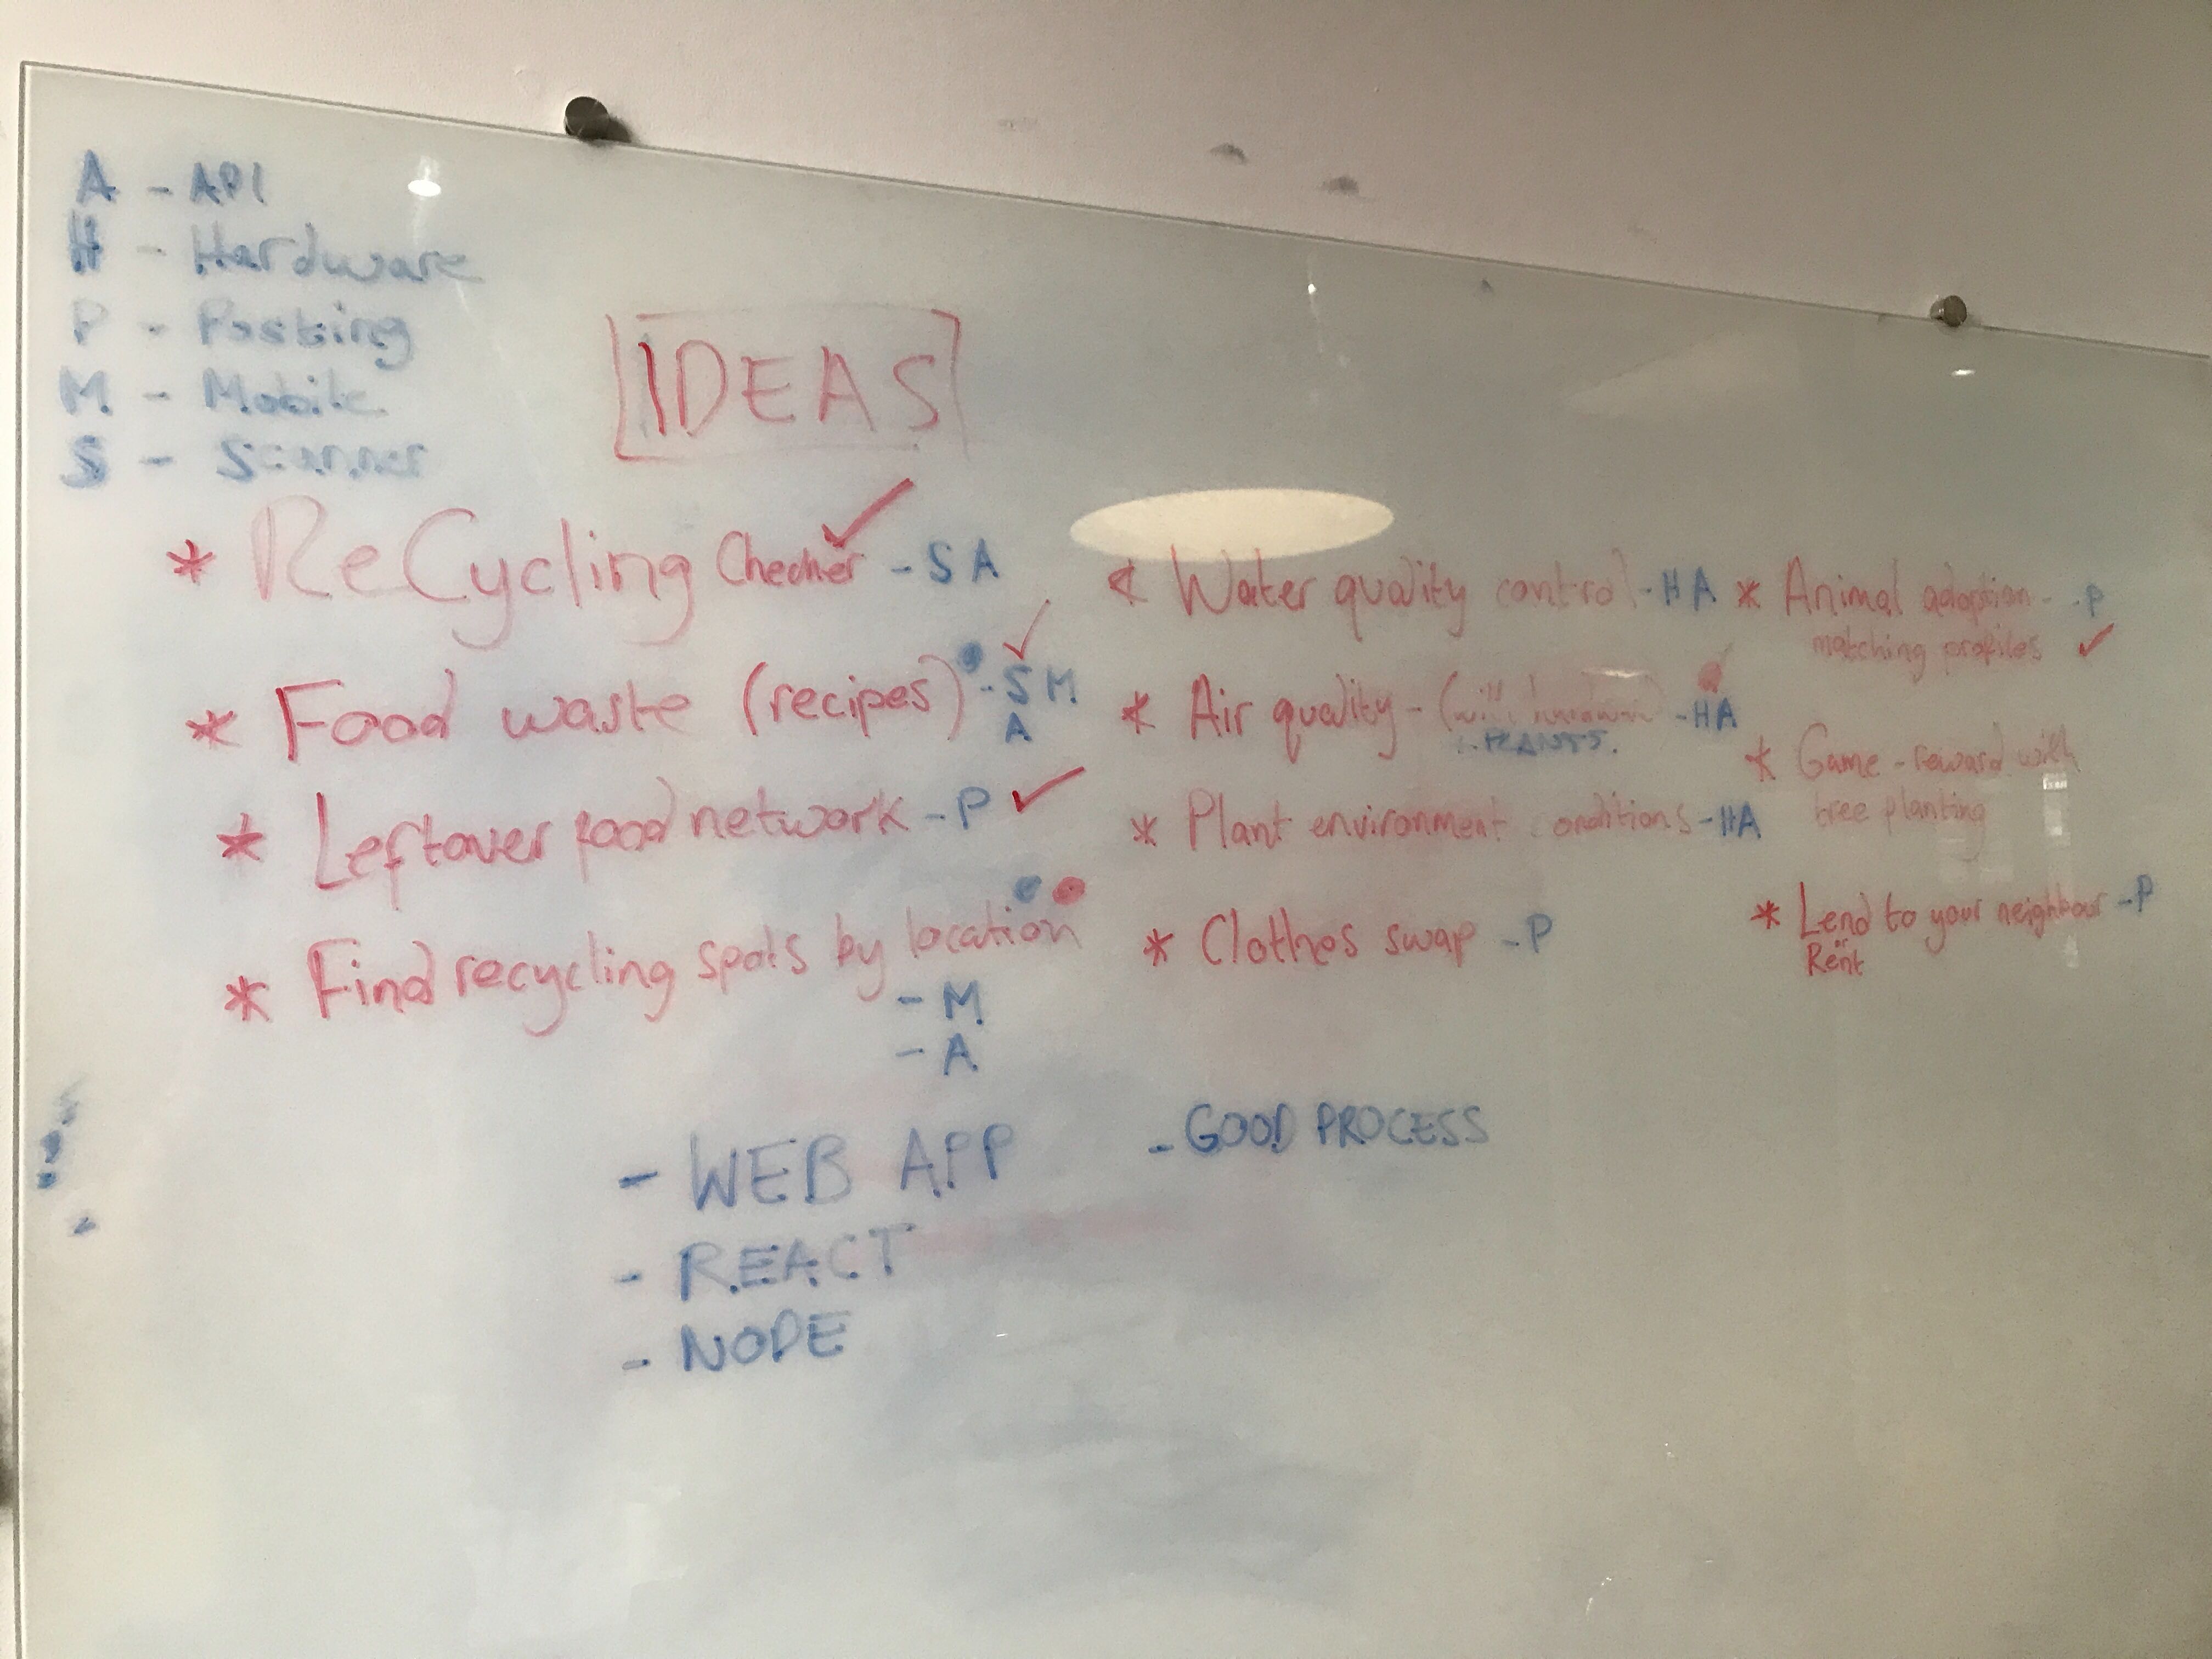 A - API
H - Hardware
P - Posting
M - Mobile
S - Scanner
IDEAS
* ReCycling Checker ✓ - S A
* Food waste (recipes) - S M ✓
A
* Leftover food network - P ✓
* Find recycling spots by location
- M
- A
* Water quality control - H A
* Air quality - ( - HA
PLANTS.
* Plant environment conditions - HA
* Clothes swap - P
* Animal adoption - - P
matching profiles ✓
* Game - reward with
tree planting
* Lend to your neighbour - P
or
Rent
- WEB APP
- REACT
- NODE
- GOOD PROCESS